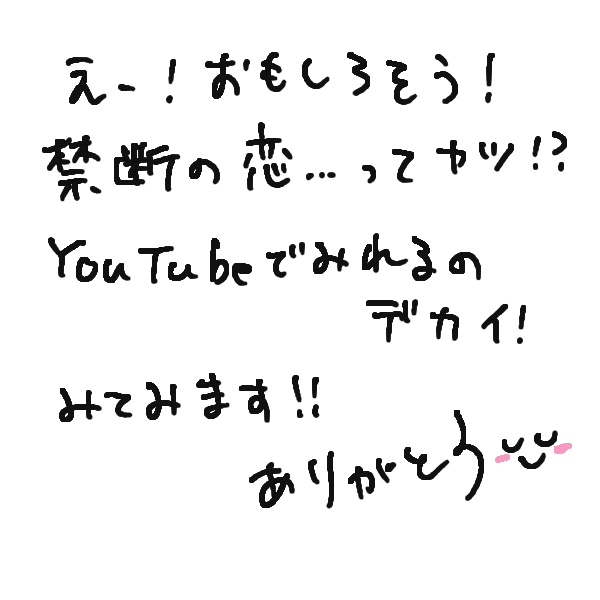 えー！おもしろそう！
禁断の恋…ってヤツ！？
YouTubeでみれるの
デカイ！
みてみます！！
ありがとう